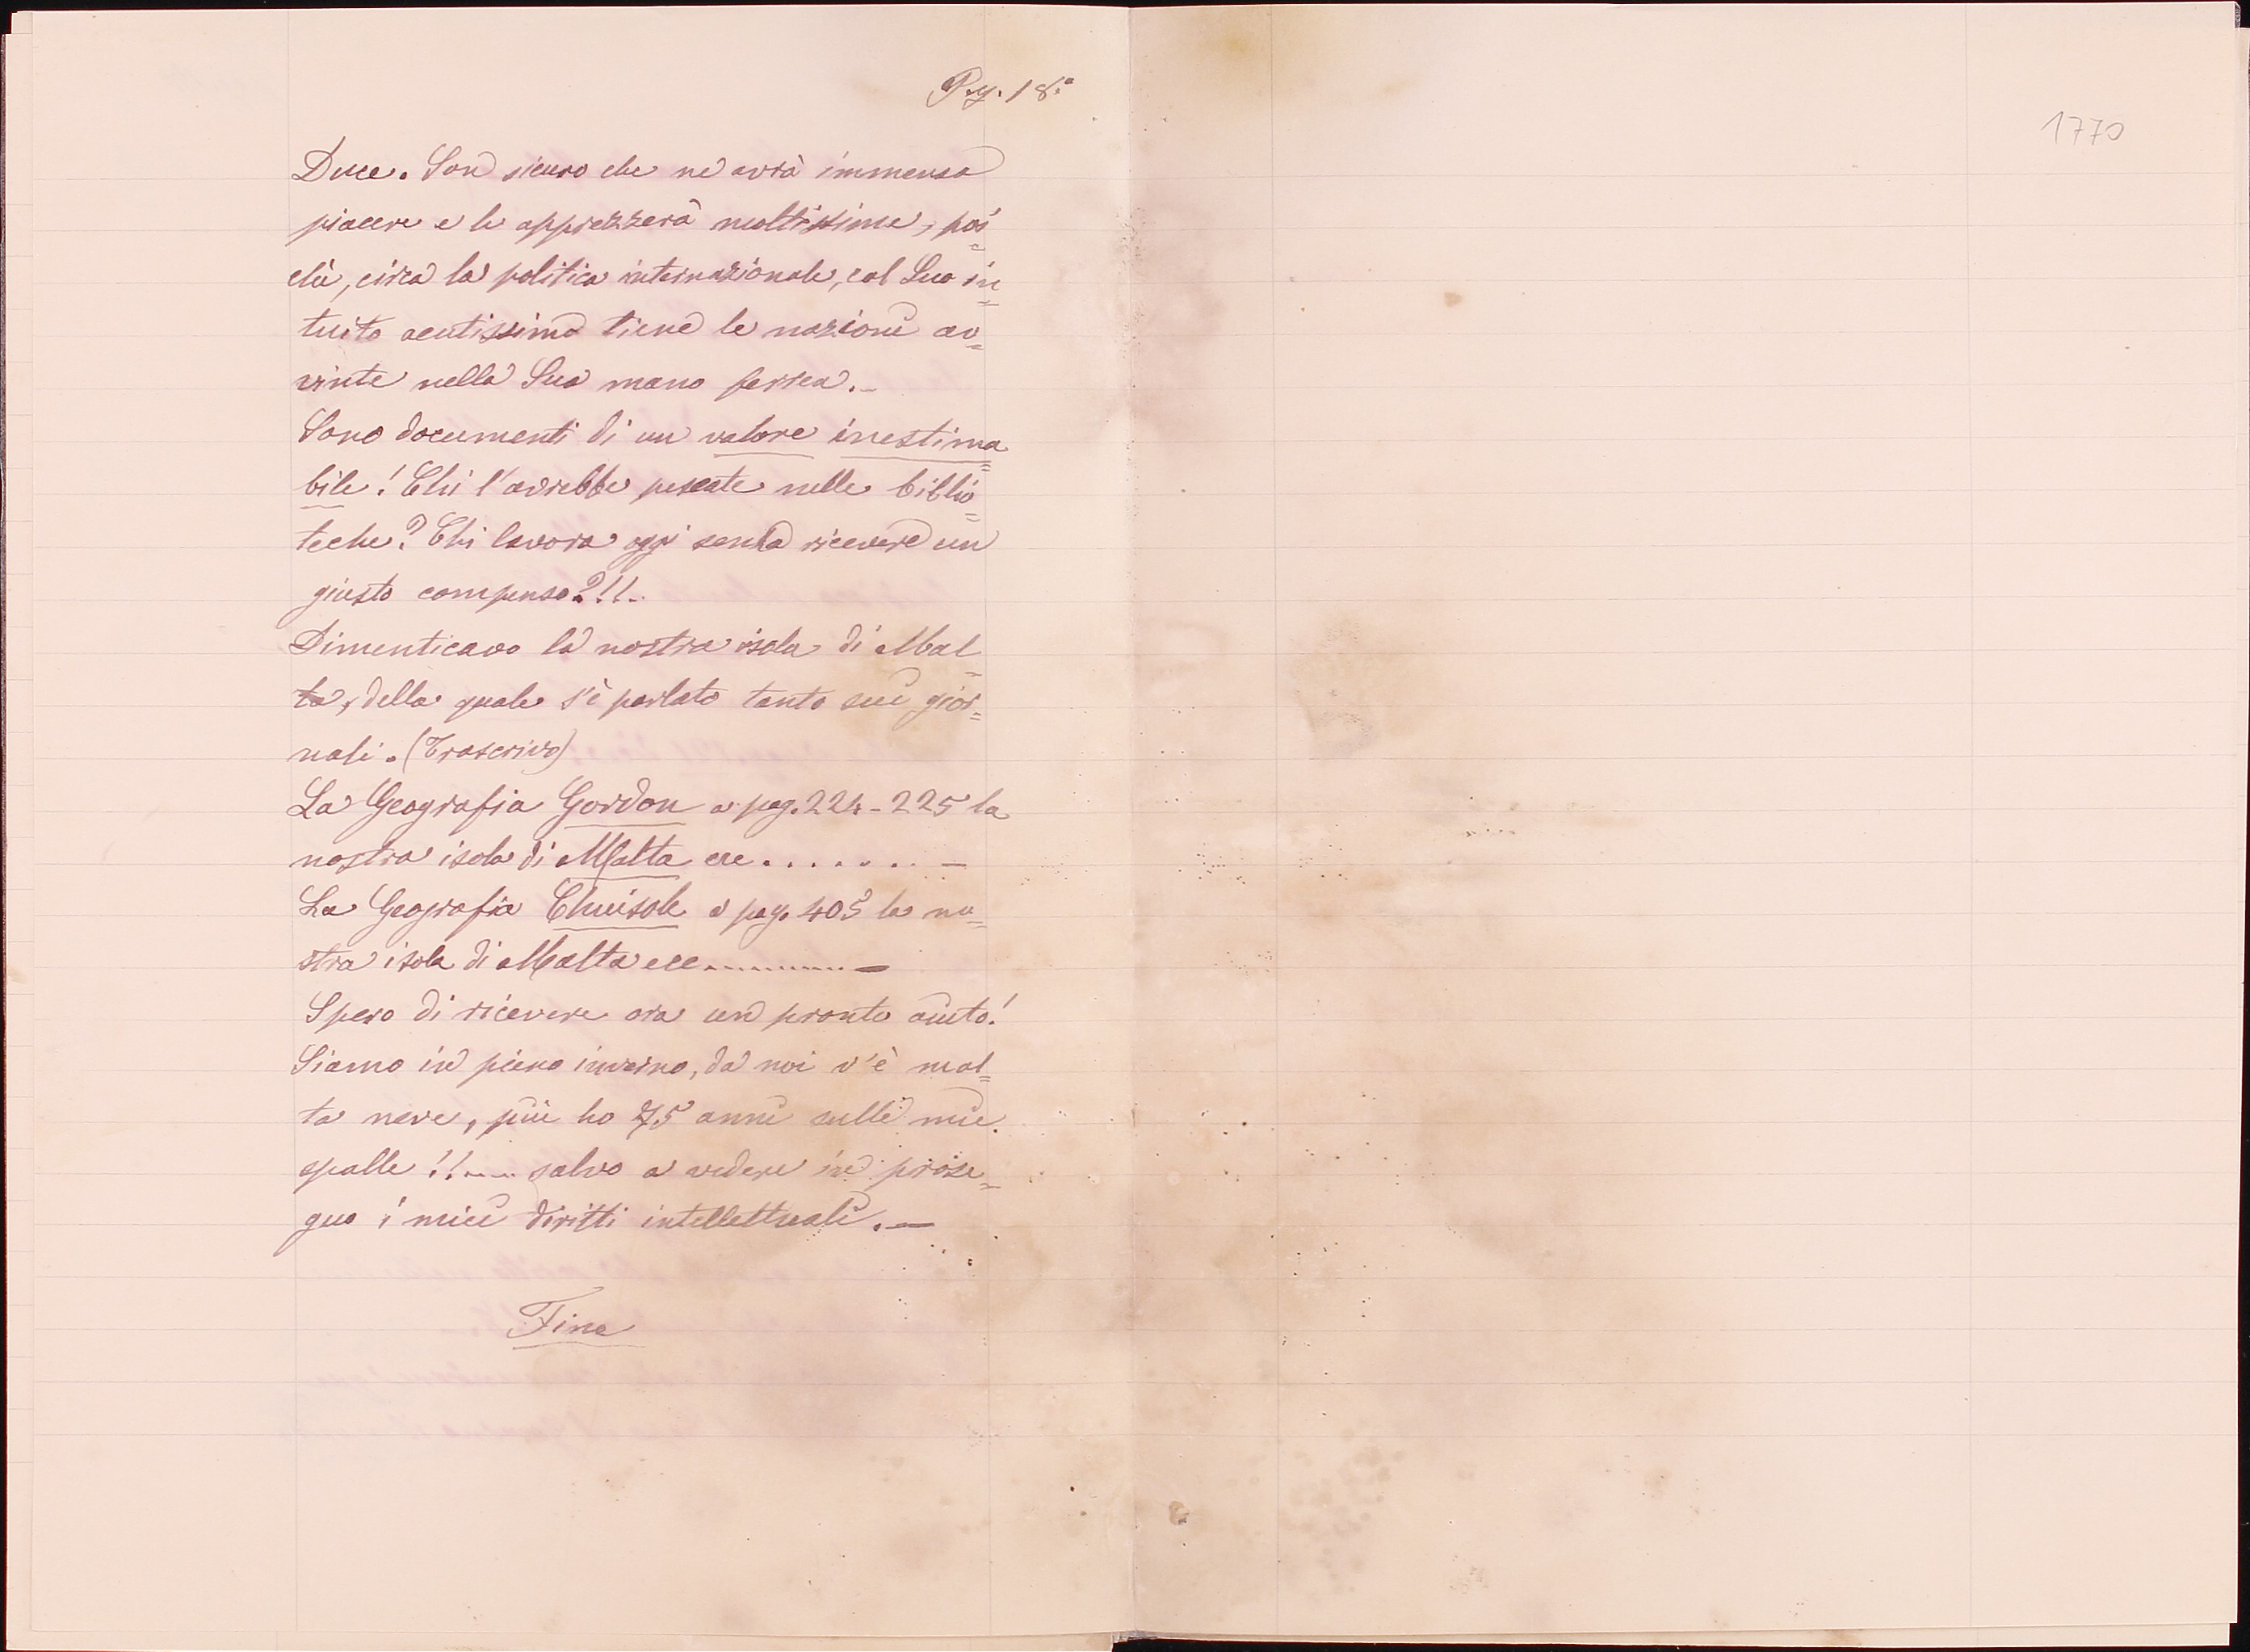 Pag. 18ª
1770
Duce. Son sicuro che ne avrà immenso
piacere e le apprezzerà moltissime, poi=
chè, circa la politica internazionale, col Suo in=
tuito acutissimo tiene le nazioni av=
vinte nella Sua mano ferrea.-
Sono documenti di un valore inestima=
bile! Chi l'avrebbe pescate nelle biblio=
teche? Chi lavora oggi senza ricevere un
giusto compenso?!!-
Dimenticavo la nostra isola di Mal=
ta, della quale s'è parlato tanto sui gior=
nali. (Trascrivo)
La Geografia Gordon a pag. 224-225 la
nostra isola di Malta ecc. . . . . . . -
La Geografia Chiusole a pag. 405 la no=
stra isola di Malta ecc........... -
Spero di ricevere ora un pronto aiuto!
Siamo in pieno inverno, da noi v'è mol=
ta neve, più ho 75 anni sulle mie
spalle!!.... salvo a vedere in prose=
guo i miei diritti intellettuali. -
Fine